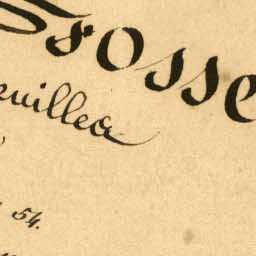 Grosse
euillea
54.